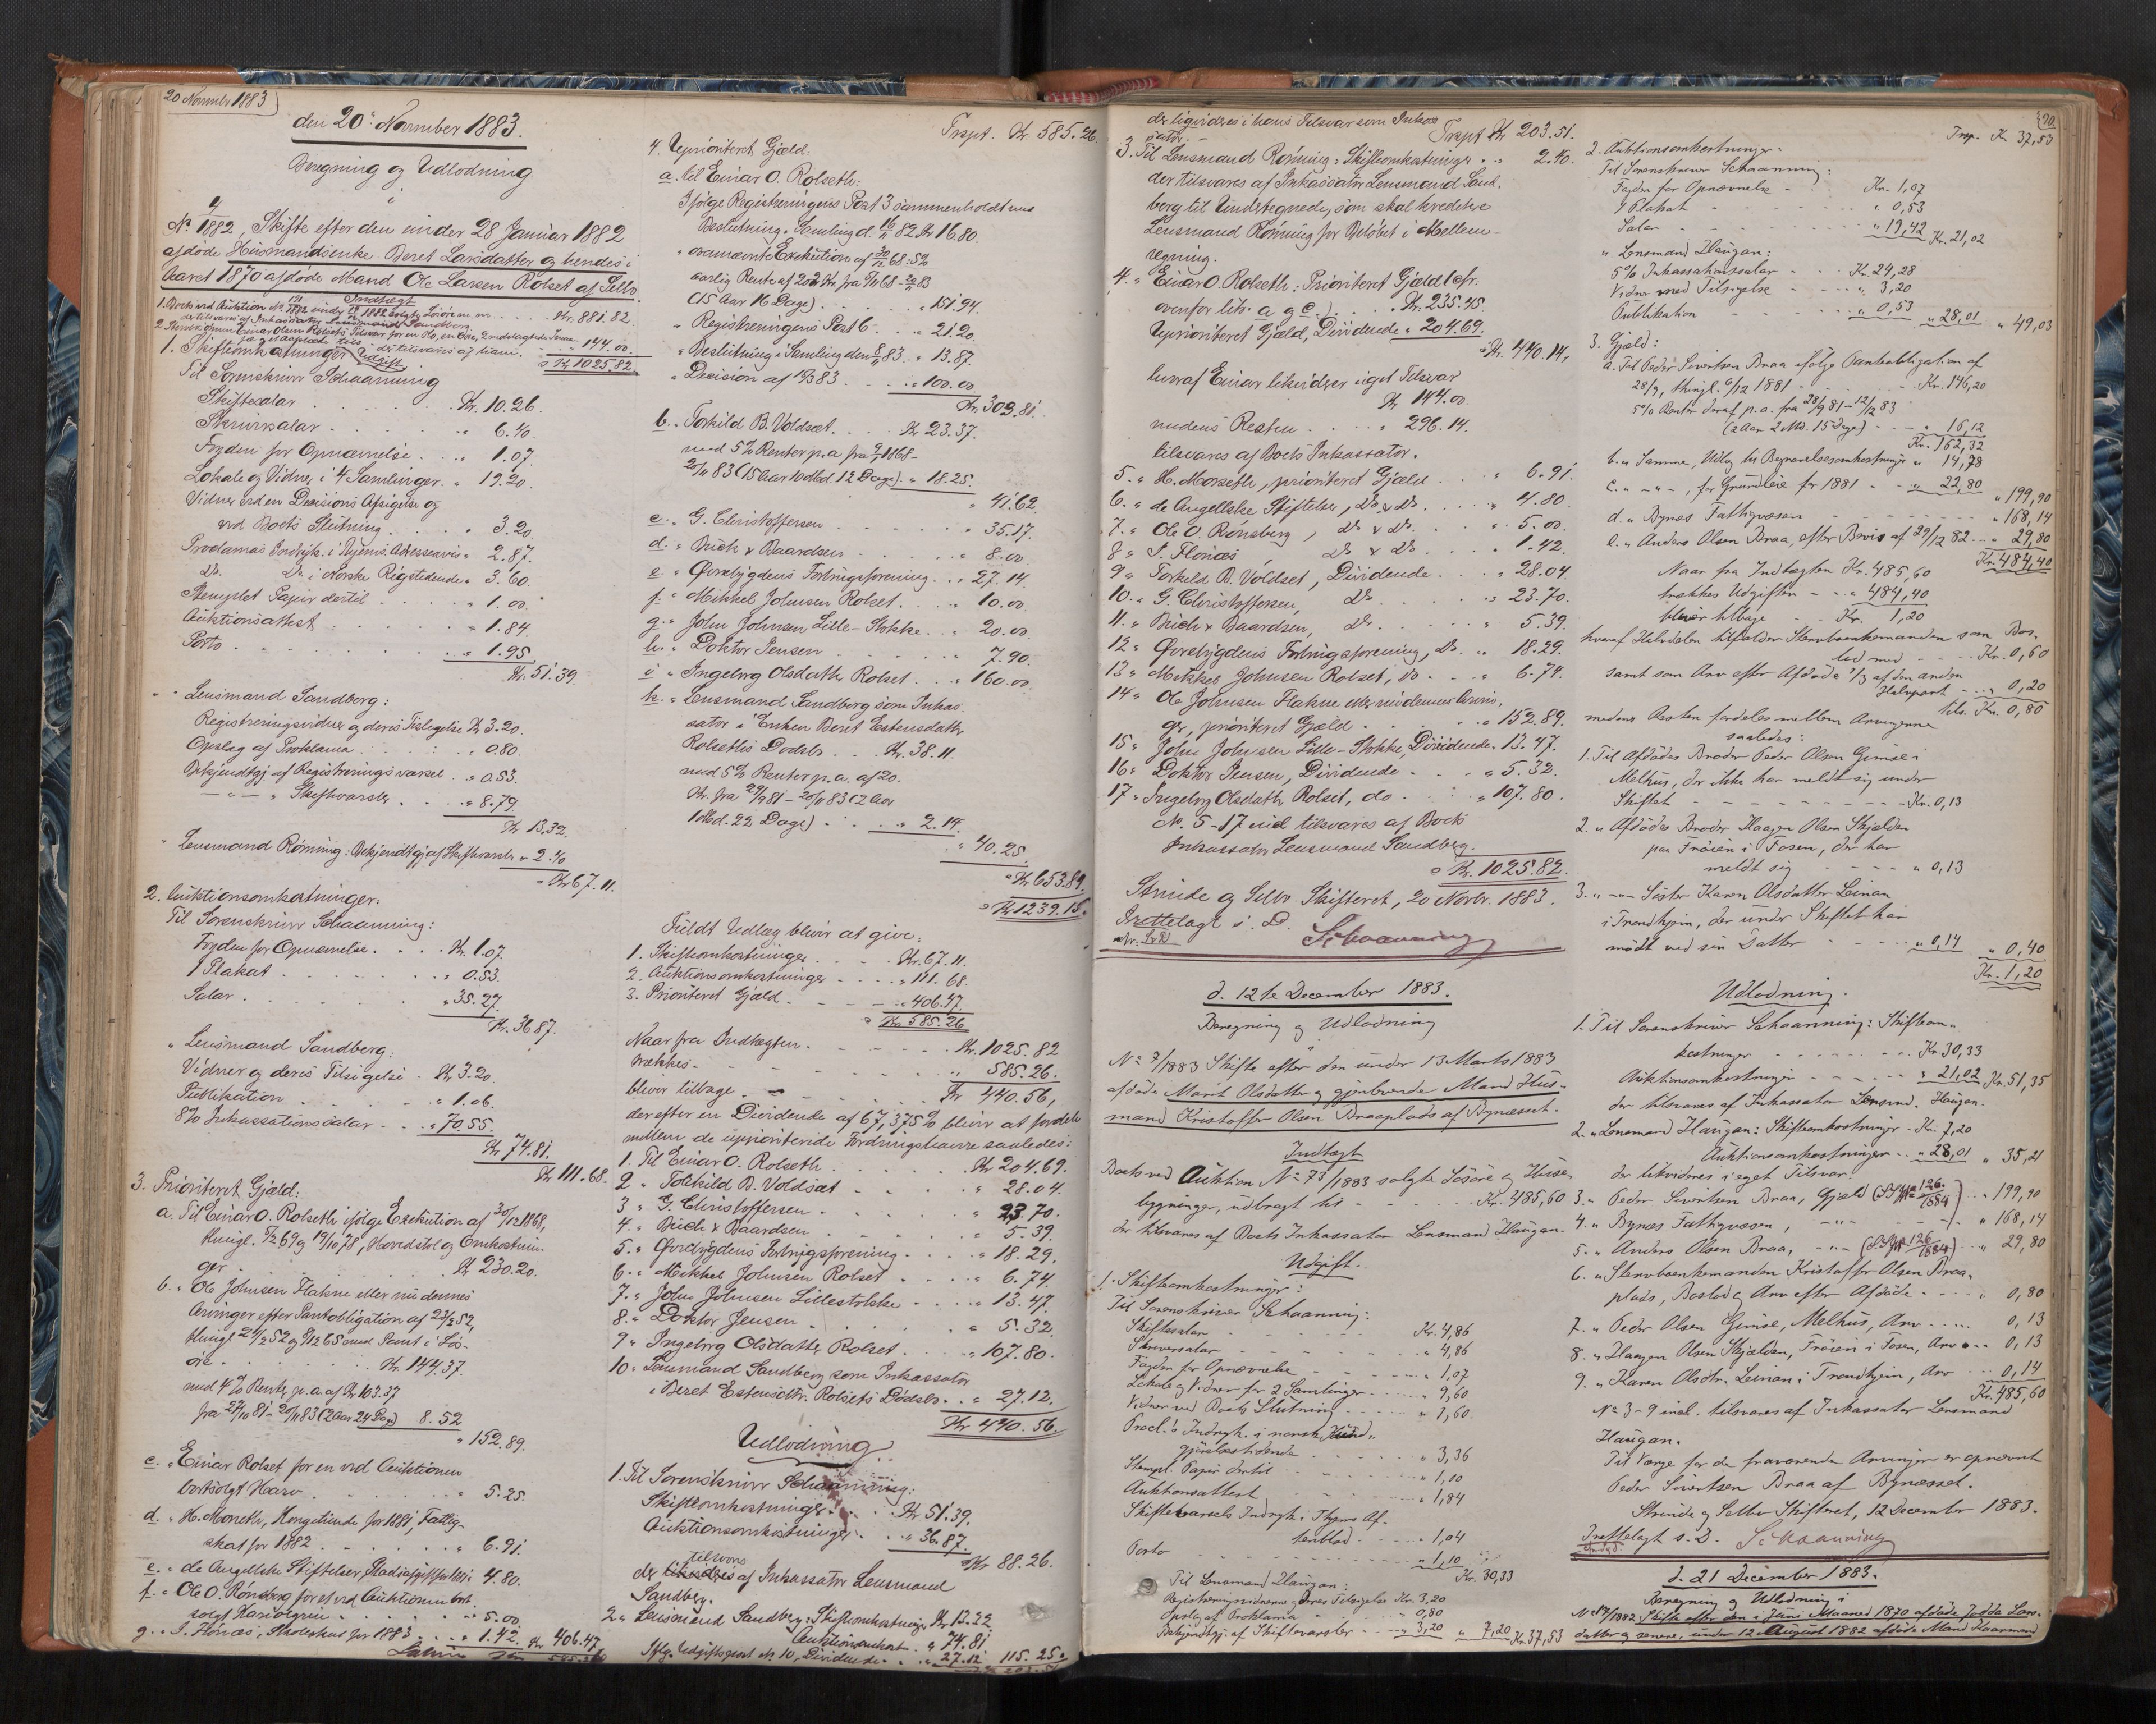 20 November 1883
den 20de November 1883.
Beregning og Udlodning
i
No 4/1882, Skifte efter den under 28 Januar 1882
afdøde Husmandsenke Beret Larsdatter og hendes i
Aaret 1870 afdøde Mand Ole Larsen Rolset af Selbo.
Indtægt
Kr. 881.82.
144.00.
Kr. 1025.82.
Udgift
1. Skifteomkostninger
Til Sorenskriver Schaanning
Skiftesalar . . . Kr. 10.26.
Skriversalar . . . " 6.40.
Fogden for Opnævnelse . . " 1.07.
Lokale og Vidner i 4 Samlinger . " 19.20.
Vidner ved en Decisions Afsigelse og
ved Boets Slutning . . . " 3.20.
Proclamas Indryk. i Thjems Adresseavis " 2.87.
Do. Do. i Norske Rigstidende " 3.60.
Stemplet Papir dertil . . . " 1.00.
Auktionsattest . . . " 1.84
Porto . . . " 1.95.
Kr. 51.39.
" Lensmand Sandberg:
Registreringsvidner og deres Tilsigelse Kr 3.20.
Opslag af Proklama . . . " 0.80.
Bekjendtgj. af Registreringsvarsel . " 0.53.
— " — " Skiftevarsler . . " 8.79.
Kr 13.32.
" Lensmand Rönning: Bekjendtgj. af Skiftevarsler " 2.40
" Kr 67.11.
2. Auktionsomkostninger.
Til Sorenskriver Schaanning:
Fogden for Opnævnelse . . . Kr. 1.07.
1 Plakat . . . " 0.53.
Salar . . . " 35.27.
Kr. 36.87.
" Lensmand Sandberg:
Vidner og deres Tilsigelse . Kr 3.20.
Publikation . . . " 1.06.
8% Inkassationssalar . . " 70.55.
Kr 74.81.
Kr 111.68.
3. Prioriteret Gjæld:
a. Til Einar O. Rolseth ifølge Exekution af 30/12 1868,
thingl. 7/2 69 og 19/10 78, Hovedstol og Omkostnin-
ger . . . Kr 230.20.
b. " Ole Johnsen Flakne eller nu dennes
Arvinger efter Pantobligation af 23/2 52,
. . . Kr. 144.37.
med 4% Rente p.a. af Kr 103.37
fra 27/10 81 - 20/11 83 (2 Aar 24 Dage) 8.52
" 152.89.
c. " Einar Rolset for en ved Auktionen
bortsolgt Harv . . . " 5.25.
d. " H. Morseth, Kongetiende for 1881, Fattig-
skat for 1882 . . . " 6.91.
e. " de Angellske Stiftelser, 4.80.
f. " Ole O. Rønsberg for et ved Auktionen bort-
solgt . . . " 5.00.
g. " J. Flønæs, Skoleskat for 1883 . . " 1.42. Kr 406.47
Trspt. Kr. 585.26.
4. Uprioriteret Gjæld:
a. til Einar O. Rolseth:
Ifølge Registreringens Post 3 sammenholdt med
Beslutning i Samling d. 16/11 82 Kr 16.80.
" ovennævnte Exekution af 30/12 68: 5%
aarlig Rente af
(15 Aar 16 Dage) . . . " 151.94.
" Registreringens Post 6 . . . " 21.20.
" Beslutning i Samling den 83 . " 13.87.
" Decision af 83 . . . " 100.00
Kr. 303.81.
b. " Torkild B. Voldset . . . Kr 23.37.
med 5% Renter p.a. fra 1868 -
20/11 83 (15 Aar 10 Md. 12 Dage) . " 18.25.
" 41.62.
c. " G. Christoffersen . . . " 35.17.
d. " Buch & Baardsen . . . " 8.00.
e. " Øvrebygdens Forbrugsforening . . " 27.14.
f. " Mikkel Johnsen Rolset . . . " 10.00.
g. " John Johnsen Lille-Stokke . . " 20.00.
h. " Doktor Jensen . . . 7.90.
i " Ingeborg Olsdatt. Rolset . . " 160.00.
k. " Lensmand Sandberg som Inkas-
sator i Enken Beret Estensdatt.
Rolseths Dødsbo . . Kr. 38.11.
med 5% Renter p.a. af 20.
Kr. fra 29/9 81 - 20/11 83 (2 Aar
1 Md. 22 Dage) . . . " 2.14.
" 40.25.
" Kr 653.89.
" Kr 1239.15.
Fuldt Udlæg bliver at give:
1. Skifteomkostninger . . . Kr. 67.11.
2. Auktionsomkostninger . . . " 111.68.
3. Prioriteret Gjæld . . . " 406.47.
" Kr. 585.26
Naar fra Indtægten . . . Kr. 1025.82
trækkes . . . " 585.26.
bliver tilbage . . . Kr 440.56,
derefter en Dividende af 67,375% bliver at fordele
mellem de uprioriterede Fordringshavere saaledes:
1. Til Einar O. Rolseth . . . Kr 204.69.
2 " Torkild B. Voldsæt . . . " 28.04.
3 " G. Christoffersen . . . " 23.70.
4. " Buch & Baardsen . . . " 5.39.
5. " Øvrebygdens Forbrugsforening . . . " 18.29,
6. " Mikkel Johnsen Rolset . . . " 6.74.
7. " John Johnsen Lillestokke . . . " 13.47.
8. " Doktor Jensen . . . " 5.32.
9 " Ingeborg Olsdatter Rolset . . . " 107.80.
10 " Lensmand Sandberg som Inkassator
i Beret Estensdtr. Rolsets Dødsbo . . " 27.12.
Kr 440.56.
Udlodning
1. Til Sorenskriver Schaanning:
Skifteomkostninger . . . Kr 51.39.
Auktionsomkostninger . . . " 36.87.
Kr 88.26.
tilsvares
der likvideres af Inkassator Lensmand
Sandberg.
2 " Lensmand Sandberg: Skifteomkostninge Kr 13.32
Auktionsomkost. " 74.81
Iflg. Udgiftspost No 10, Dividende . . " 27.12 115.25.
der ligvideres i hans Tilsvar som Inkas-
sator.
Trspt Kr 203.51.
3. Til Lensmand Rönning: Skifteomkostninger . . 2.40.
der tilsvares af Inkassator Lensmand Sand-
berg til Undertegnede, som skal kreditere
Lensmand Rönning for Beløbet i Mellem-
regning.
4. " Einar O. Rolseth: Prioriteret Gjæld (cfr.
ovenfor litr. a og c.) . . Kr. 235.45.
Uprioriteret Gjæld, Dividende " 204.69.
" Kr. 440.14,
hvoraf Einar likviderer i eget Tilsvar
Kr 144.00.
medens Resten . . . " 296.14.
tilsvares af Boets Inkassator.
5. " H. Morseth, prioriteret Gjæld . . . " 6.91.
6. " de Angellske Stiftelser, Do & Do. . . " 4.80.
7. " Ole O. Rönsberg, Do & Do. . . " 5.00.
8 " J. Flönæs Do & Do. . . " 1.42.
9 " Torkild B. Voldset, Dividende . . " 28.04.
10. " G. Christoffersen, Do. . . " 23.70.
11. " Buch & Baardsen, Do. . . " 5.39.
12 " Øvrebygdens Forbrugsforening, Do. " 18.29.
13 " Mikkel Johnsen Rolset, do . . " 6.74.
14 " Ole Johnsen Flakne eller nu dennes Arvin-
ger, prioriteret Gjæld . . . " 152.89.
15 " John Johnsen Lille-Stokke, Dividende " 13.47.
16 " Doktor Jensen, Dividende . . . " 5.32.
17 " Ingeborg Olsdatt. Rolset, do . . . " 107.80.
No. 5-17 incl tilsvares af Boets
Inkassator Lensmand Sandberg.
" Kr. 1025.82.
Strinde og Selbo Skifteret, 20 Novbr. 1883.
Irettelagt s. D.
Schaanning
d. 12te December 1883.
Beregning og Udlodning
i
No 7/1883 Skifte efter den under 13 Marts 1883
afdøde Marit Olsdatter og gjenlevende Mand Hus-
mand Kristoffer Olsen Braaplads af Bynæsset.
Indtægt
Boets ved Auktion No 73/1883 solgte Løsøre og Huse-
bygninger, udbragt til . . . Kr. 485,60
der tilsvares af Boets Inkassator Lensmand Haugan.
Udgift.
1. Skifteomkostninger:
Til Sorenskriver Schaanning:
Skiftesalar . . . Kr. 4,86
Skriversalar . . . " 4,86
Fogden for Opnævnelse . . . " 1,07
Lokale og Vidner for 2 Samlinger . . " 9,60
Vidner ved Boets Slutning . . . " 1,60.
Procl.s Indryk. i norsk Kund-
gjørelsestidende . . . " 3,36
Stempl. Papir dertil . . . " 1,10
Auktionsattest . . . " 1,84
Skiftevarsels Indryk. i Thjems Af-
tenblad . . . " 1,04
Porto . . . " 1,10
Kr. 30,33
Til Lensmand Haugan:
Registreringsvidnerne og deres Tilsigelse Kr. 3,20
Opslag af Proklama . . . " 0,80
Bekjendtgj. af Skiftevarsler . . " 3,20 " 7,20 Kr. 37,53
70
Trsp. Kr. 37,53
2. Auktionsomkostninger:
Til Sorenskriver Schaanning:
Fogden for Opnævnelse . . . Kr. 1,07
1 Plakat . . . " 0,53
Salar . . . " 19,42 Kr. 21,02
" Lensmand Haugan:
5% Inkassationssalar . . Kr. 24,28
Vidner med Tilsigelse . . " 3,20
Publikation . . . " 0,53 " 28,01 " 49,03
3. Gjæld:
a. Til Peder Sivertsen Braa ifølge Pantobligation af
28/9, thingl. 6/12 1881 . . . Kr. 146,20
5% Renter deraf p.a. fra 28/9 81 - 12/12 83
(2 Aar 2 Md. 15 Dage) . . " 16,12
Kr. 162,32
b. " Samme, Udlæg til Begravelsesomkostninger " 14,78
c. " — " —, for Grundleie for 1881 . . " 22,80 " 199,90
d. " Bynæs Fattigvæsen . . . " 168,14
e. " Anders Olsen Braa, efter Bevis af 29/12 82 . . " 29,80
Kr. 484,40
Naar fra Indtægten Kr. 485,60
trækkes Udgiften . . " 484,40
bliver tilbage . . Kr. 1,20
hvoraf Halvdelen tilfalder Stervboenkemanden som Bos-
lod med . . . Kr. 0,60
samt som Arv efter Afdøde 1/3 af den anden
Halvpart . . . " 0,20
tils. Kr. 0,80
medens Resten fordeles mellem Arvingerne
saaledes:
1. Til Afdødes Broder Peder Olsen Gimse i
Melhus, der ikke har meldt sig under
Skiftet . . . Kr. 0,13
2. " Afdødes Broder Haagen Olsen Skjølden
paa Frøien i Fosen, der har
meldt sig . . . " 0,13
3. " — " — Søster Karen Olsdatter Leinan
i Trondhjem, der under Skiftet har
mødt ved sin Datter . . . " 0,14 " 0,40
Kr. 1,20
Udlodning.
1. Til Sorenskriver Schaanning: Skifteom-
kostninger . . . Kr. 30,33
Auktionsomkostninger . . . " 21,02 Kr. 51,35
der tilsvares af Inkassator Lensmd. Haugan.
2. " Lensmand Haugan: Skifteomkostninger . Kr. 7,20
Auktionsomkostninger . . " 28,01 " 35,21
der likvideres i eget Tilsvar.
3. " Peder Sivertsen Braa, Gjæld . . " 199,90
4. " Bynæs Fattigvæsen, — " — . . " 168,14
5. " Anders Olsen Braa, — " — . . " 29,80
6. " Stervboenkemanden Kristoffer Olsen Braa-
plads, Boslod og Arv efter Afdøde . . " 0,80
7. " Peder Olsen Gimse, Melhus, Arv . . . 0,13
8. " Haagen Olsen Skjølden, Frøien i Fosen, Arv . . 0,13
9. " Karen Olsdtr. Leinan i Trondhjem, Arv . . 0,14
Kr. 485,60
No 3-9 incl. tilsvares af Inkassator Lensmand
Haugan.
Til Værge for de fraværende Arvinger er opnævnt
Peder Sivertsen Braa af Bynæsset.
Strinde og Selbo Skifteret, 12 December 1883.
Irettelagt s. D. Schaanning
d. 21 December 1883.
Beregning og Udlodning i
Skifte efter den i Juni Maaned 1870 afdøde
datter og senere, under 12 August 1882 afdøde Mand